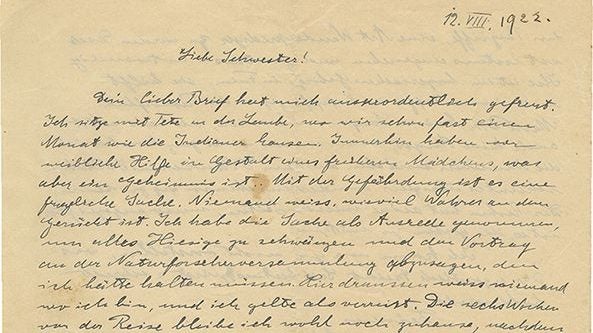 12. VIII. 1922.
Liebe Schwester!
Dein lieber Brief hat mich ausserordentlich gefreut.
Ich sitze mit Tete in der Laube, wo wir schon fast einen
Monat wie die Indianer hausen. Immerhin haben wir
weibliche Hilfe in Gestalt eines früheren Mädchens, was
aber ein Geheimnis ist. Mit der Gefährdung ist es eine
fragliche Sache. Niemand weiss, wieviel Wahres an dem
Gerücht ist. Ich habe die Sache als Ausrede genommen,
um alles Hiesige zu schwänzen und den Vortrag
an der Naturforscherversammlung abzusagen, den
ich hätte halten müssen. Hier draussen weiss niemand
wo ich bin, und ich gelte als verreist. Die sechs Wochen
vor der Reise bleibe ich wohl noch zuhause, nachdem